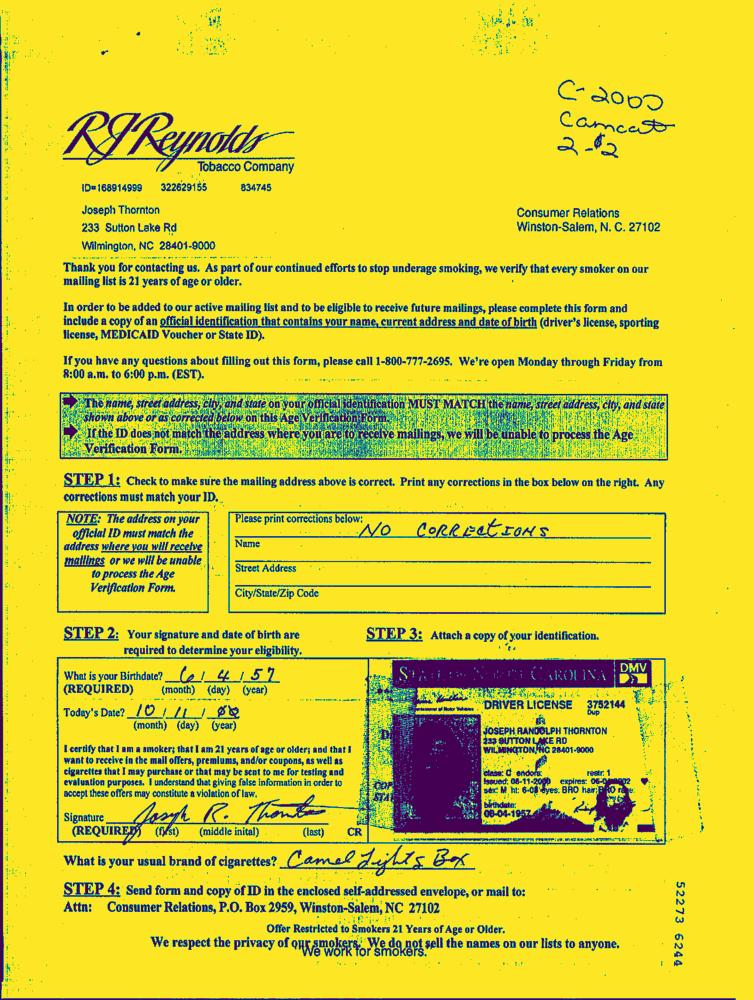 C-2000
Camcat
2-$2
RJReynolds
Tobacco Company
ID=168914999 322629155 834745
Joseph Thornton
233 Sutton Lake Rd
Wilmington, NC 28401-9000
Consumer Relations
Winston-Salem, N. C. 27102
Thank you for contacting us. As part of our continued efforts to stop underage smoking, we verify that every smoker on our
mailing list is 21 years of age or older.
In order to be added to our active mailing list and to be eligible to receive future mailings, please complete this form and
include a copy of an official identification that contains your name, current address and date of birth (driver's license, sporting
license, MEDICAID Voucher or State ID).
If you have any questions about filling out this form, please call 1-800-777-2695. We're open Monday through Friday from
8:00 a.m. to 6:00 p.m. (EST).
The name, street address, city, and state on your official identification MUST MATCH the name, street address, city, and state
shown above or as corrected below on this Age Verification Form.
If the ID does not match the address where you are to receive mailings, we will be unable to process the Age
Verification Form.
STEP 1: Check to make sure the mailing address above is correct. Print any corrections in the box below on the right. Any
corrections must match your ID.
NOTE: The address on your
official ID must match the
address where you will receive
mailings or we will be unable
to process the Age
Verification Form.
Please print corrections below:
NO CORRECTIONS
Name
Street Address
City/State/Zip Code
STEP 2: Your signature and date of birth are
required to determine your eligibility.
What is your Birthdate? 6 / 4 / 57
(REQUIRED) (month) (day) (year)
Today's Date? 10 / 11 / 00
(month) (day) (year)
I certify that I am a smoker; that I am 21 years of age or older; and that I
want to receive in the mail offers, premiums, and/or coupons, as well as
cigarettes that I may purchase or that may be sent to me for testing and
evaluation purposes. I understand that giving false information in order to
accept these offers may constitute a violation of law.
Signature Joseph R. Thornton
(REQUIRED) (first) (middle inital) (last) CR
STEP 3: Attach a copy of your identification.
STATE OF NORTH CAROLINA DMV
DRIVER LICENSE 3752144
Dup
JOSEPH RANDOLPH THORNTON
233 SUTTON LAKE RD
WILMINGTON, NC 28401-9000
class: C endors: restr: 1
issued: 08-11-2000 expires:
sex: M ht: 6-03 eyes: BRO hair: BRO
birthdate:
What is your usual brand of cigarettes? Camel Lights Box
STEP 4: Send form and copy of ID in the enclosed self-addressed envelope, or mail to:
Attn: Consumer Relations, P.O. Box 2959, Winston-Salem, NC 27102
Offer Restricted to Smokers 21 Years of Age or Older.
We respect the privacy of our smokers. We do not sell the names on our lists to anyone.
We work for smokers.
52273 6244